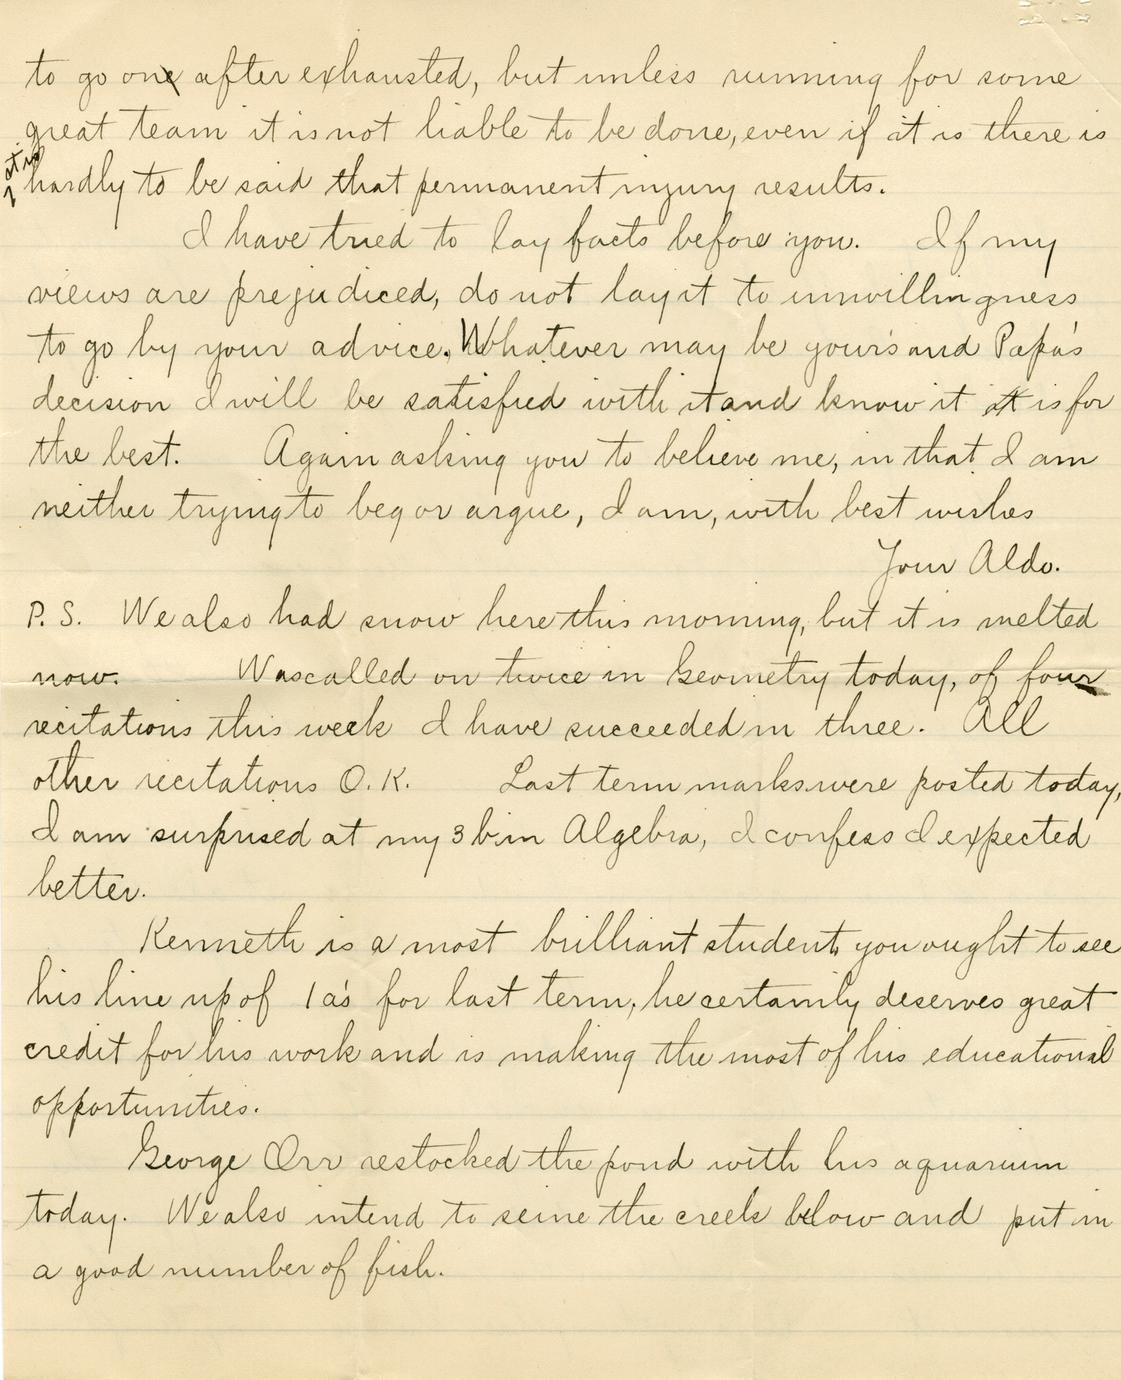 to go on after exhausted, but unless running for some
great team it is not liable to be done, even if it is there is
it is
hardly to be said that permanent injury results.
I have tried to lay facts before you. If my
views are prejudiced, do not lay it to unwillingness
to go by your advice. Whatever may be your's and Papa's
decision I will be satisfied with it and know it it is for
the best. Again asking you to believe me, in that I am
neither trying to beg or argue, I am, with best wishes
Your Aldo.
P.S. We also had snow here this morning, but it is melted
now. Was called on twice in Geometry today, of four
recitations this week I have succeeded in three. All
other recitations O.K. Last term marks were posted today,
I am surprised at my 3b in Algebra, I confess I expected
better.
Kenneth is a most brilliant student, you ought to see
his line up of 1a's for last term, he certainly deserves great
credit for his work and is making the most of his educational
opportunities.
George Orr restocked the pond with his aquarium
today. We also intend to seine the creek below and put in
a good number of fish.